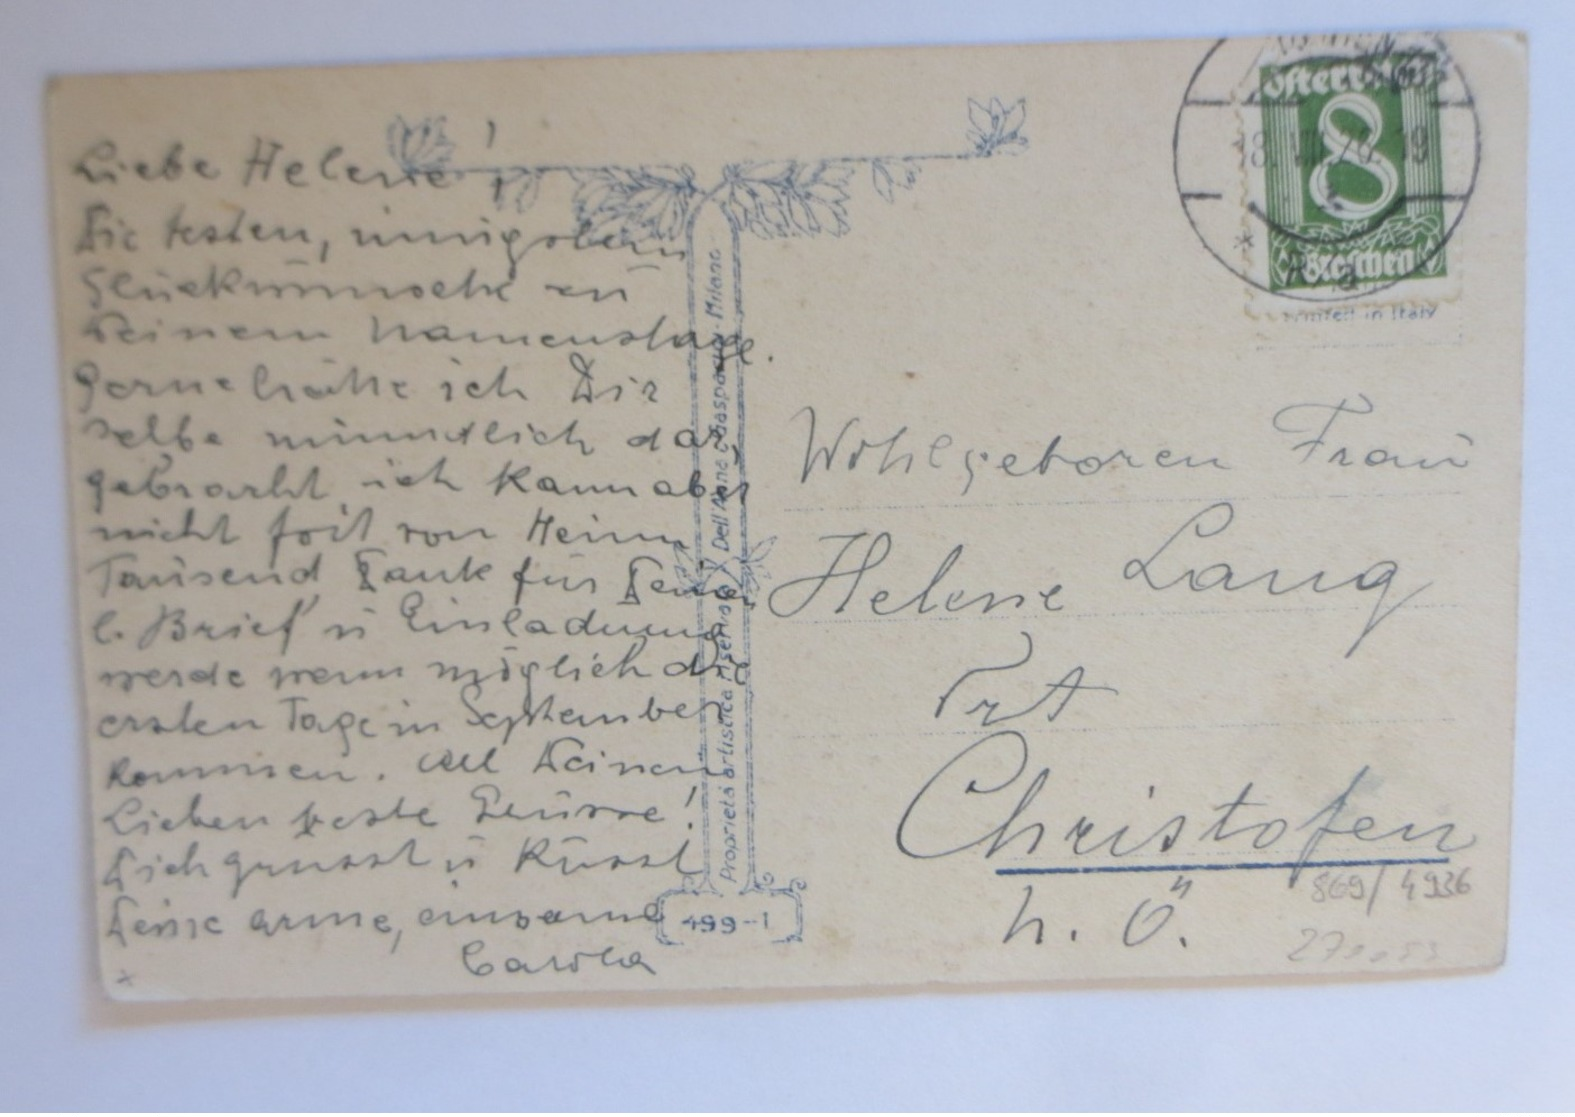 Liebe Helene!
Die besten, innigsten
Glückwünsche zu
Deinem Namenstage.
Gerne hätte ich Dir
selbe mündlich dar,
gebracht, ich kann aber
nicht fort von Heim
Tausend Dank für Deinen
l. Brief u Einladung
werde wenn möglich die
ersten Tage in September
kommen. All Deinen
Lieben beste Grüsse!
Dich grüsst u küsst
Deine arme, einsame
Carola
Proprietà artistica riservata Dell'Anna & Gasparini - Milano
499-I
Österreich
8
Groschen
18. VIII 19
Printed in Italy
Wohlgeboren Frau
Helene Lang
Ort
Christofen
N. Ö.
869/4936